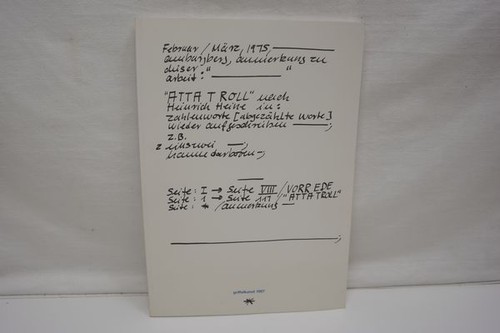 Februar / März, 1975,
am burgberg, anmerkung zu
dieser: "
arbeit: " "
"ATTA TROLL" nach
Heinrich Heine in:
zahlenworte [abgezählte Worte]
wieder aufgeschrieben ;
z.B.
2 eins zwei ;
hanne darboven -,
Seite: I → Seite VIII / VORREDE
Seite: 1 → Seite 111 / "ATTA TROLL"
Seite: * / anmerkung —